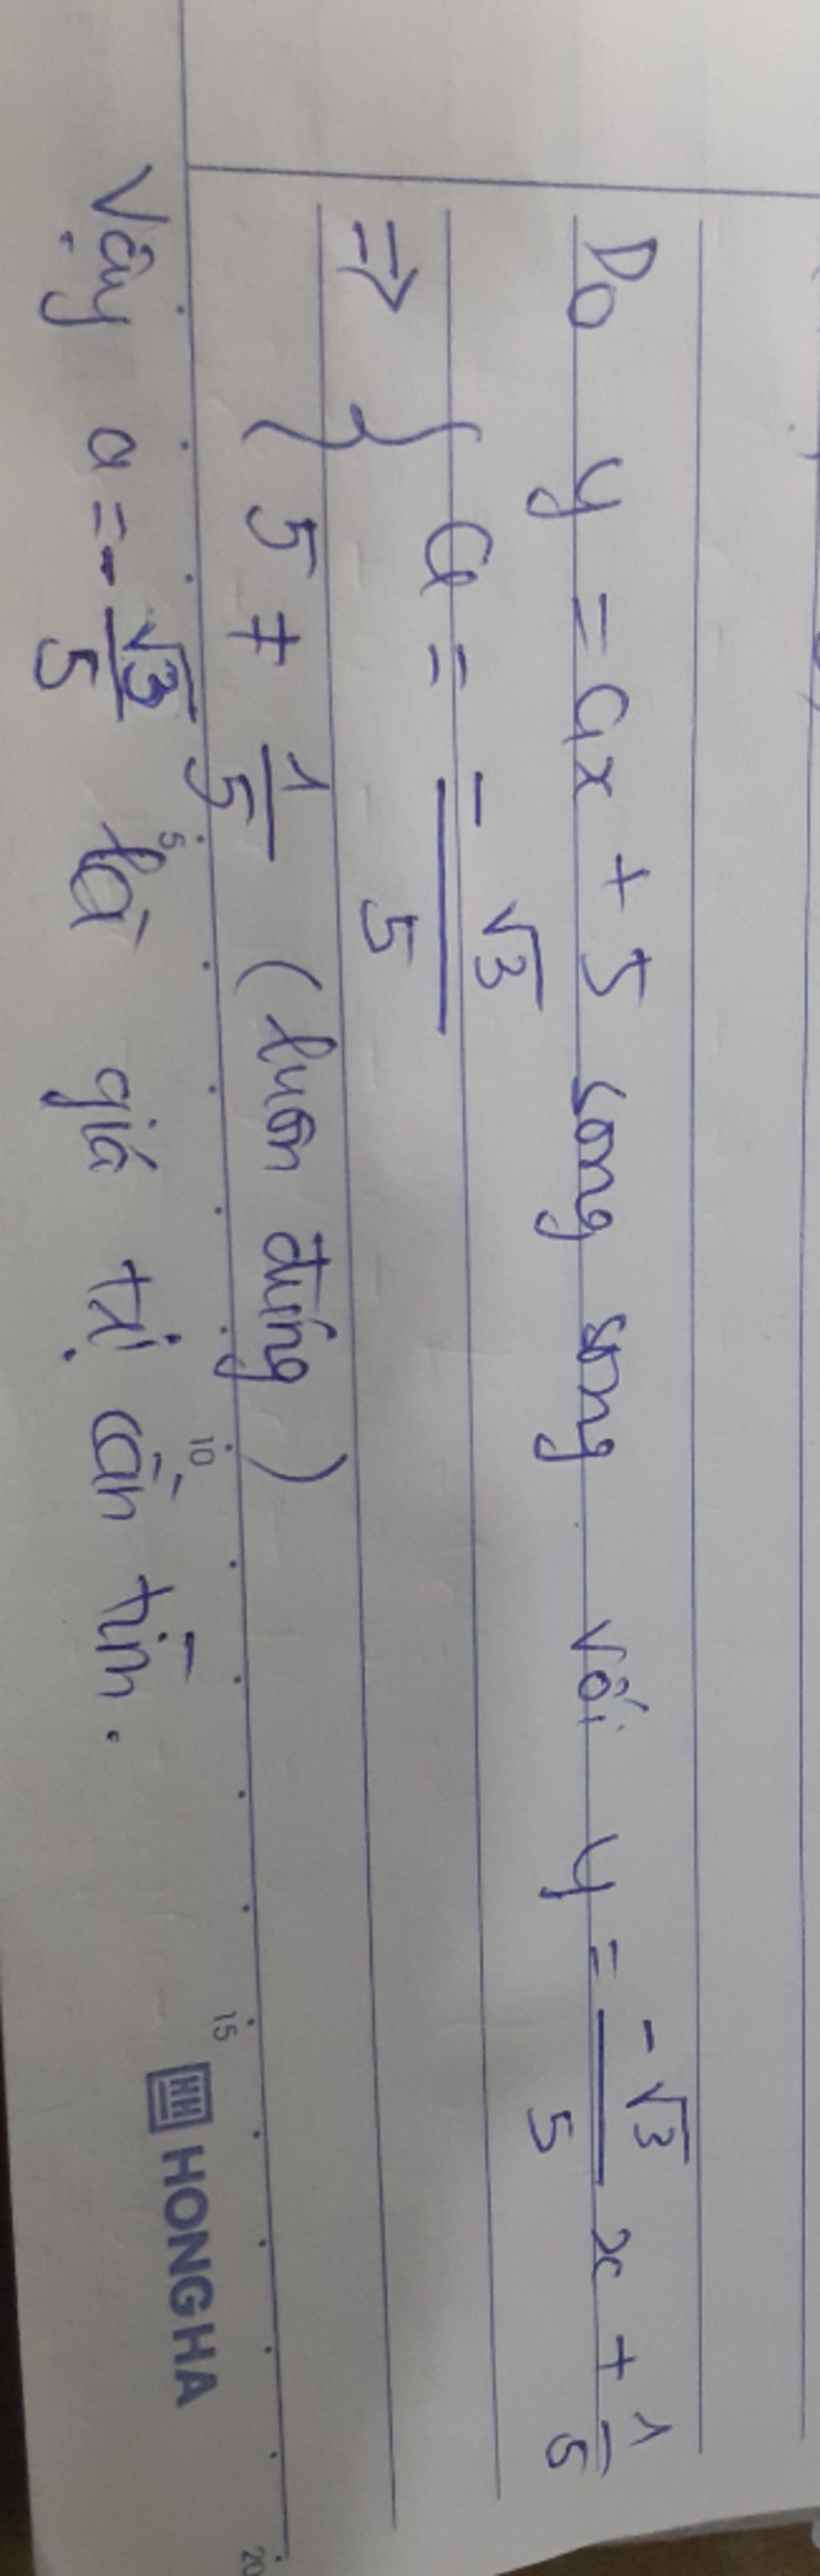 Do y = ax + 5 song song với y = -√3/5 x + 1/5
=> { a = -√3/5
5 ≠ 1/5 (luôn đúng)
Vậy a = -√3/5 là giá trị cần tìm.
5 10 15 20
HH HONG HA